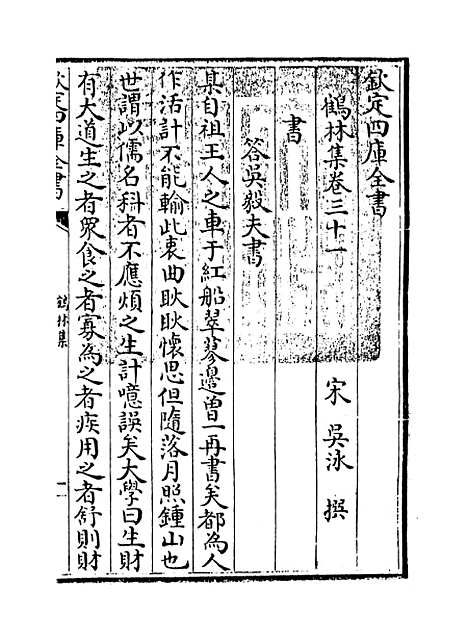 欽定四庫全書
鶴林集卷三十一
宋 吳泳 撰
書
答吳毅夫書
某自祖王人之車于紅船翠蓼邊曽一再書矣都為人
作活計不能輸此衷曲耿耿懷思但隨落月照鍾山也
世謂以儒名科者不應煩之生計噫誤矣大學曰生財
有大道生之者衆食之者寡為之者疾用之者舒則財
欽定四庫全書
鶴林集
一